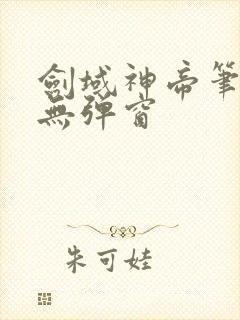 劍域神帝筆
無彈窗
朱可娃